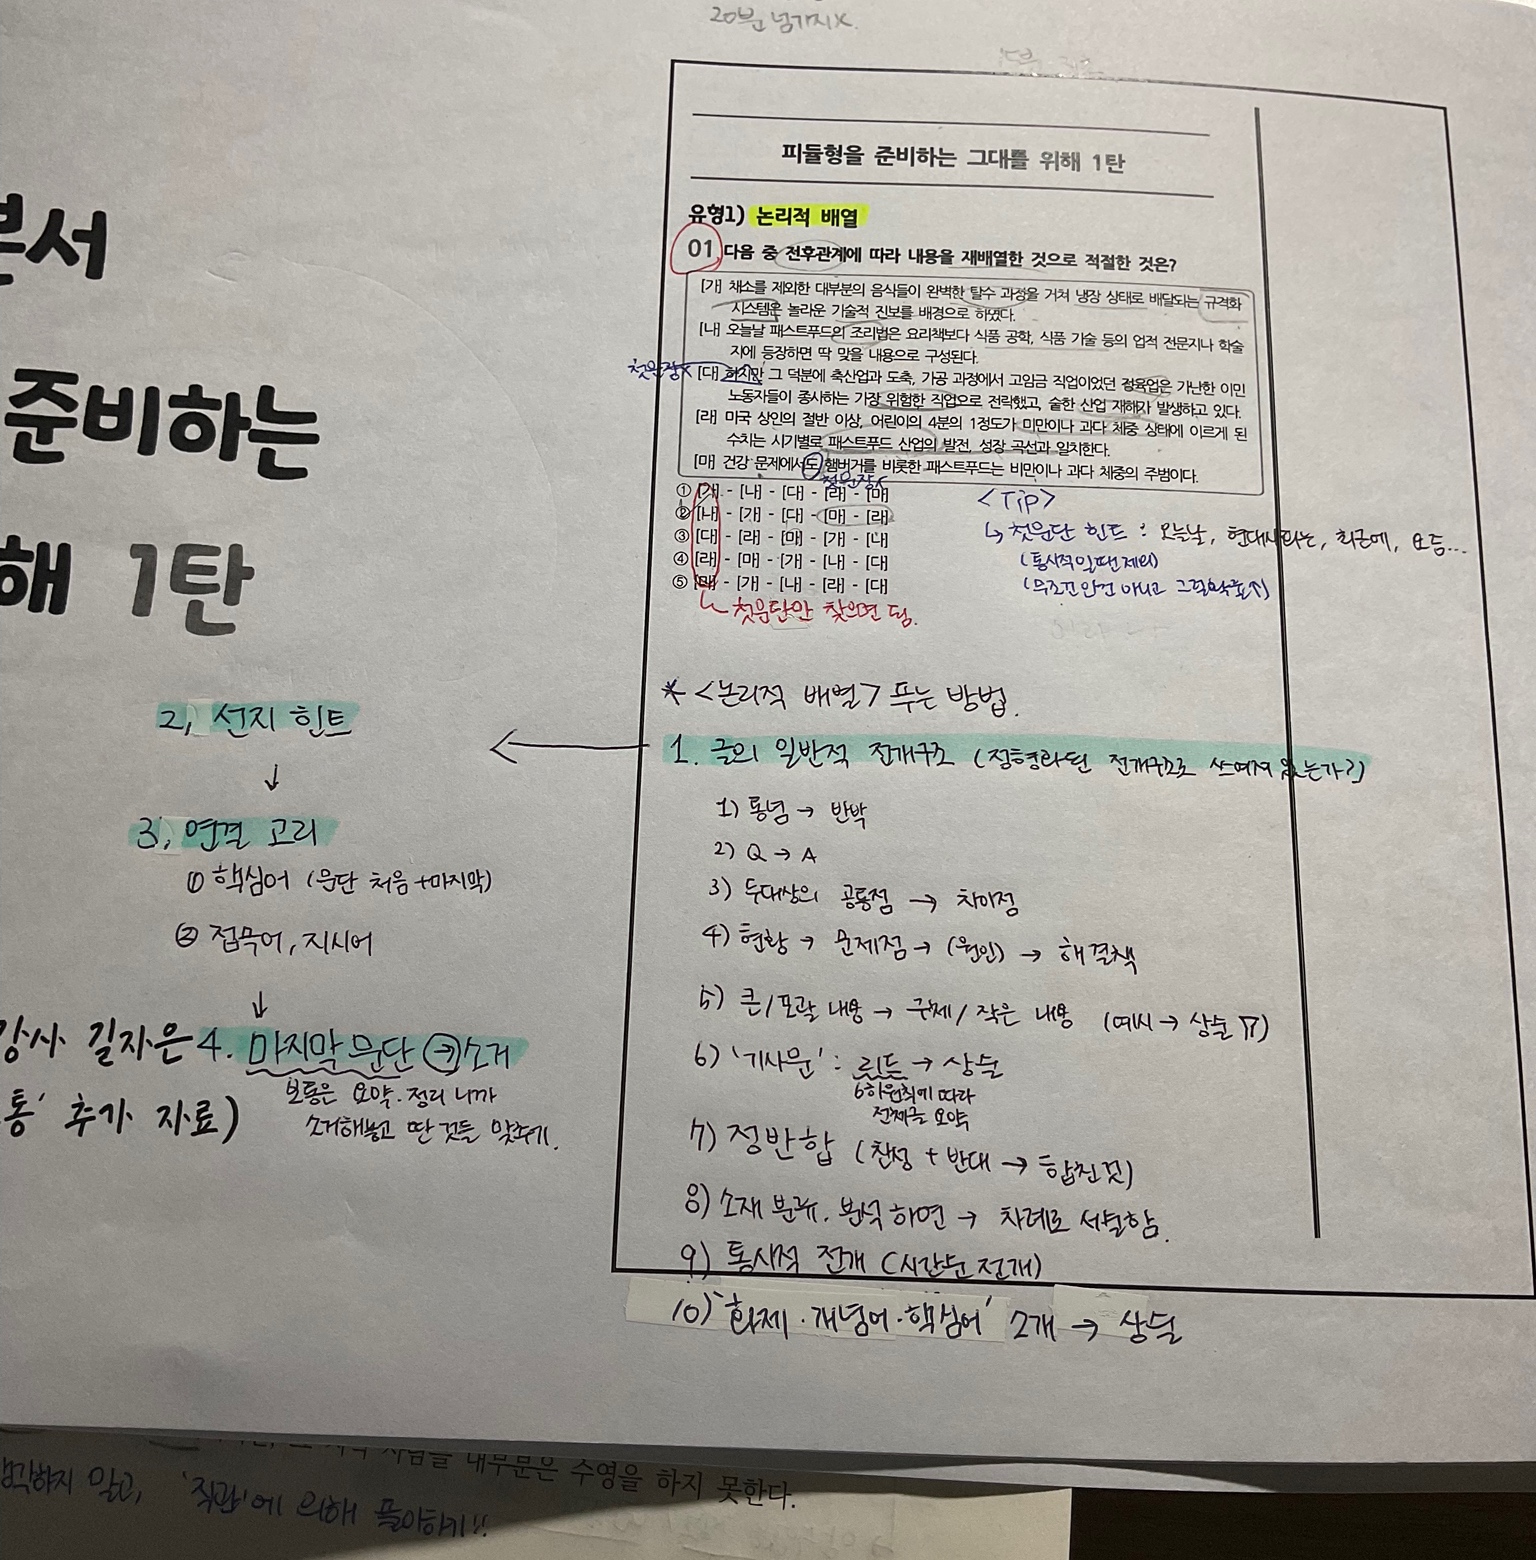 20분 넘기지X.
본서
준비하는
해 1탄
피듈형을 준비하는 그대를 위해 1탄
유형1) 논리적 배열
01 다음 중 전후관계에 따라 내용을 재배열한 것으로 적절한 것은?
[가] 채소를 제외한 대부분의 음식들이 완벽한 탈수 과정을 거쳐 냉장 상태로 배달되는 규격화
시스템은 놀라운 기술적 진보를 배경으로 하였다.
[나] 오늘날 패스트푸드의 조리법은 요리책보다 식품 공학, 식품 기술 등의 업적 전문지나 학술
지에 등장하면 딱 맞을 내용으로 구성된다.
첫문장X
[다] 하지만 그 덕분에 축산업과 도축, 가공 과정에서 고임금 직업이었던 정육업은 가난한 이민
노동자들이 종사하는 가장 위험한 직업으로 전락했고, 숱한 산업 재해가 발생하고 있다.
[라] 미국 상인의 절반 이상, 어린이의 4분의 1정도가 미만이나 과다 체중 상태에 이르게 된
수치는 시기별로 패스트푸드 산업의 발전, 성장 곡선과 일치한다.
[마] 건강 문제에서도 햄버거를 비롯한 패스트푸드는 비만이나 과다 체중의 주범이다.
첫문장X
① [가] - [나] - [다] - [라] - [마]
② [나] - [가] - [다] - [마] - [라]
③ [다] - [라] - [마] - [가] - [나]
④ [라] - [마] - [가] - [나] - [다]
⑤ [마] - [가] - [나] - [라] - [다]
첫문단만 찾으면 됨.
<Tip>
↳ 첫문단 힌트 : 오늘날, 현대사회는, 최근에, 요즘...
(통시적일땐 제외)
(무조건 인건 아니고 그럴확률↑)
* <논리적 배열> 푸는 방법.
1. 글의 일반적 전개구조 (정형화된 전개구조로 쓰여져 있는가?)
1) 통념 → 반박
2) Q → A
3) 두대상의 공통점 → 차이점
4) 현황 → 문제점 → (원인) → 해결책
5) 큰/포괄 내용 → 구체/작은 내용 (예시 → 상술 )
6) '기사문' : 리드 → 상술
6하원칙에 따라
전체글 요약
7) 정반합 (찬성 + 반대 → 합친것)
8) 소재 분류, 분석 하면 → 차례로 서술함.
9) 통시적 전개 (시간순 전개)
10) '화제·개념어·핵심어' 2개 → 상술
2, 선지 힌트
↓
3, 연결 고리
① 핵심어 (문단 처음+마지막)
② 접속어, 지시어
↓
강사 길자은
4. 마지막 문단 → 소거
보통은 요약·정리 니까
소거해놓고 딴 것들 맞추기.
통' 추가 자료)
내부분은 수영을 하지 못한다.
생각하지 말고, '직관'에 의해 풀이하기!!